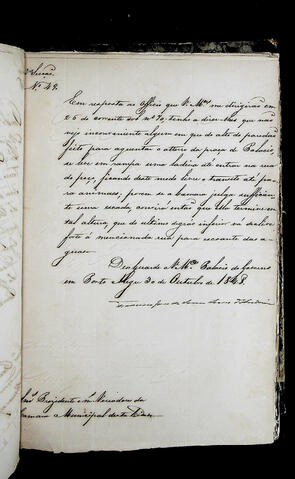 2ª Secção
Nº 48.
Em resposta ao Officio que V. Mcês me dirigirão em
26 do corrente sob nº 70, tenho a dizer-lhes que não
vejo inconveniente algum em que do alto do paredão
feito para aguentar o aterro da praça de Palacio,
se leve em rampa uma ladeira até entrar na rua
de peças, ficando deste modo livre o transito até pa-
ra animaes, porem se a camara julga sufficien-
te uma escada, convirá então que ella termine em
tal altura, que do ultimo degráo inferior
á mencionada rua para escoante das a-
guas.
Deos Guarde a V. Mcês Palacio do Governo
em Porto Alegre 30 de Outubro de 1848.
Francisco José de Souza Soares d'Andréa
Snrs. Prezidente e Vereadores da
Camara Municipal desta Cidade